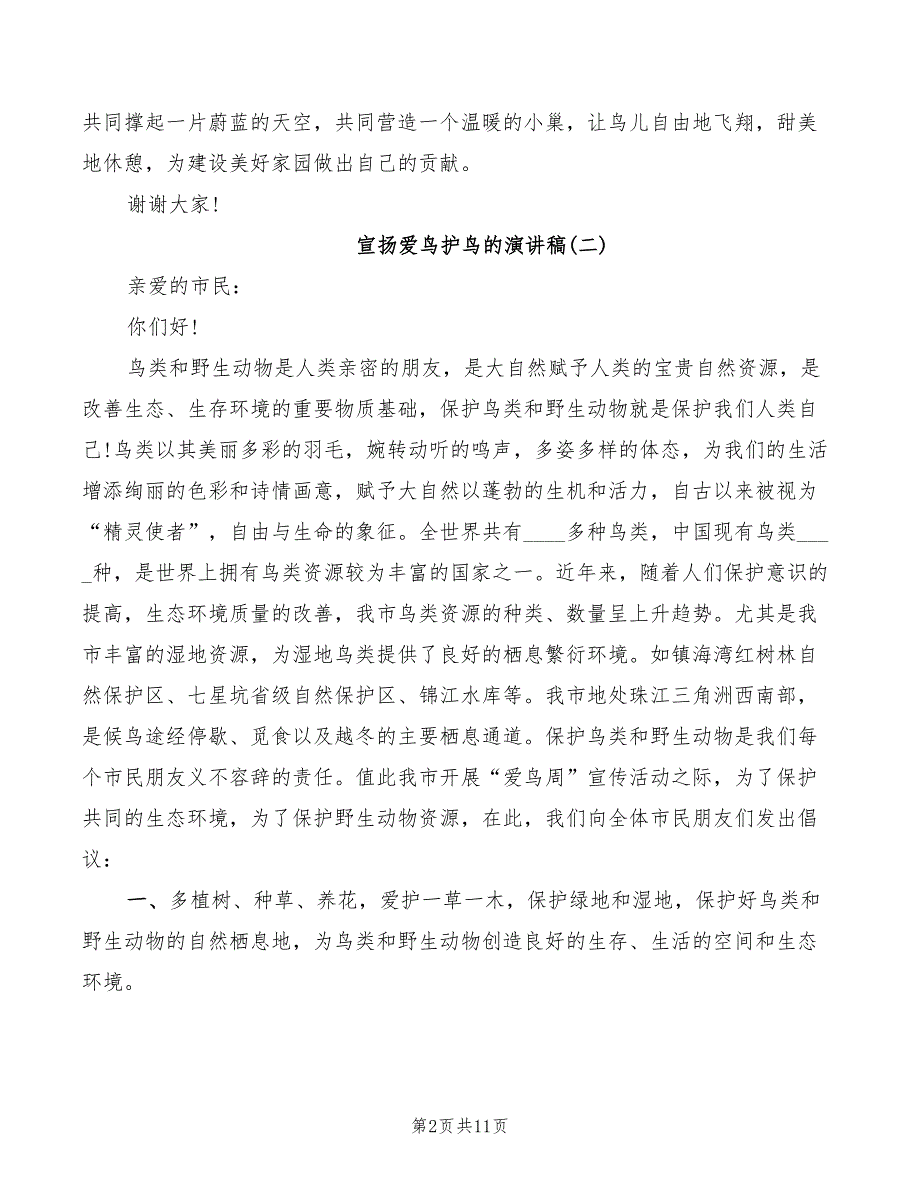 共同撑起一片蔚蓝的天空，共同营造一个温暖的小巢，让鸟儿自由地飞翔，甜美
地休憩，为建设美好家园做出自己的贡献。
谢谢大家!
宣扬爱鸟护鸟的演讲稿(二)
亲爱的市民：
你们好!
鸟类和野生动物是人类亲密的朋友，是大自然赋予人类的宝贵自然资源，是
改善生态、生存环境的重要物质基础，保护鸟类和野生动物就是保护我们人类自
己!鸟类以其美丽多彩的羽毛，婉转动听的鸣声，多姿多样的体态，为我们的生活
增添绚丽的色彩和诗情画意，赋予大自然以蓬勃的生机和活力，自古以来被视为
“精灵使者”，自由与生命的象征。全世界共有____多种鸟类，中国现有鸟类___
_种，是世界上拥有鸟类资源较为丰富的国家之一。近年来，随着人们保护意识的
提高，生态环境质量的改善，我市鸟类资源的种类、数量呈上升趋势。尤其是我
市丰富的湿地资源，为湿地鸟类提供了良好的栖息繁衍环境。如镇海湾红树林自
然保护区、七星坑省级自然保护区、锦江水库等。我市地处珠江三角洲西南部，
是候鸟途经停歇、觅食以及越冬的主要栖息通道。保护鸟类和野生动物是我们每
个市民朋友义不容辞的责任。值此我市开展“爱鸟周”宣传活动之际，为了保护
共同的生态环境，为了保护野生动物资源，在此，我们向全体市民朋友们发出倡
议：
一、多植树、种草、养花，爱护一草一木，保护绿地和湿地，保护好鸟类和
野生动物的自然栖息地，为鸟类和野生动物创造良好的生存、生活的空间和生态
环境。
第2页共11页